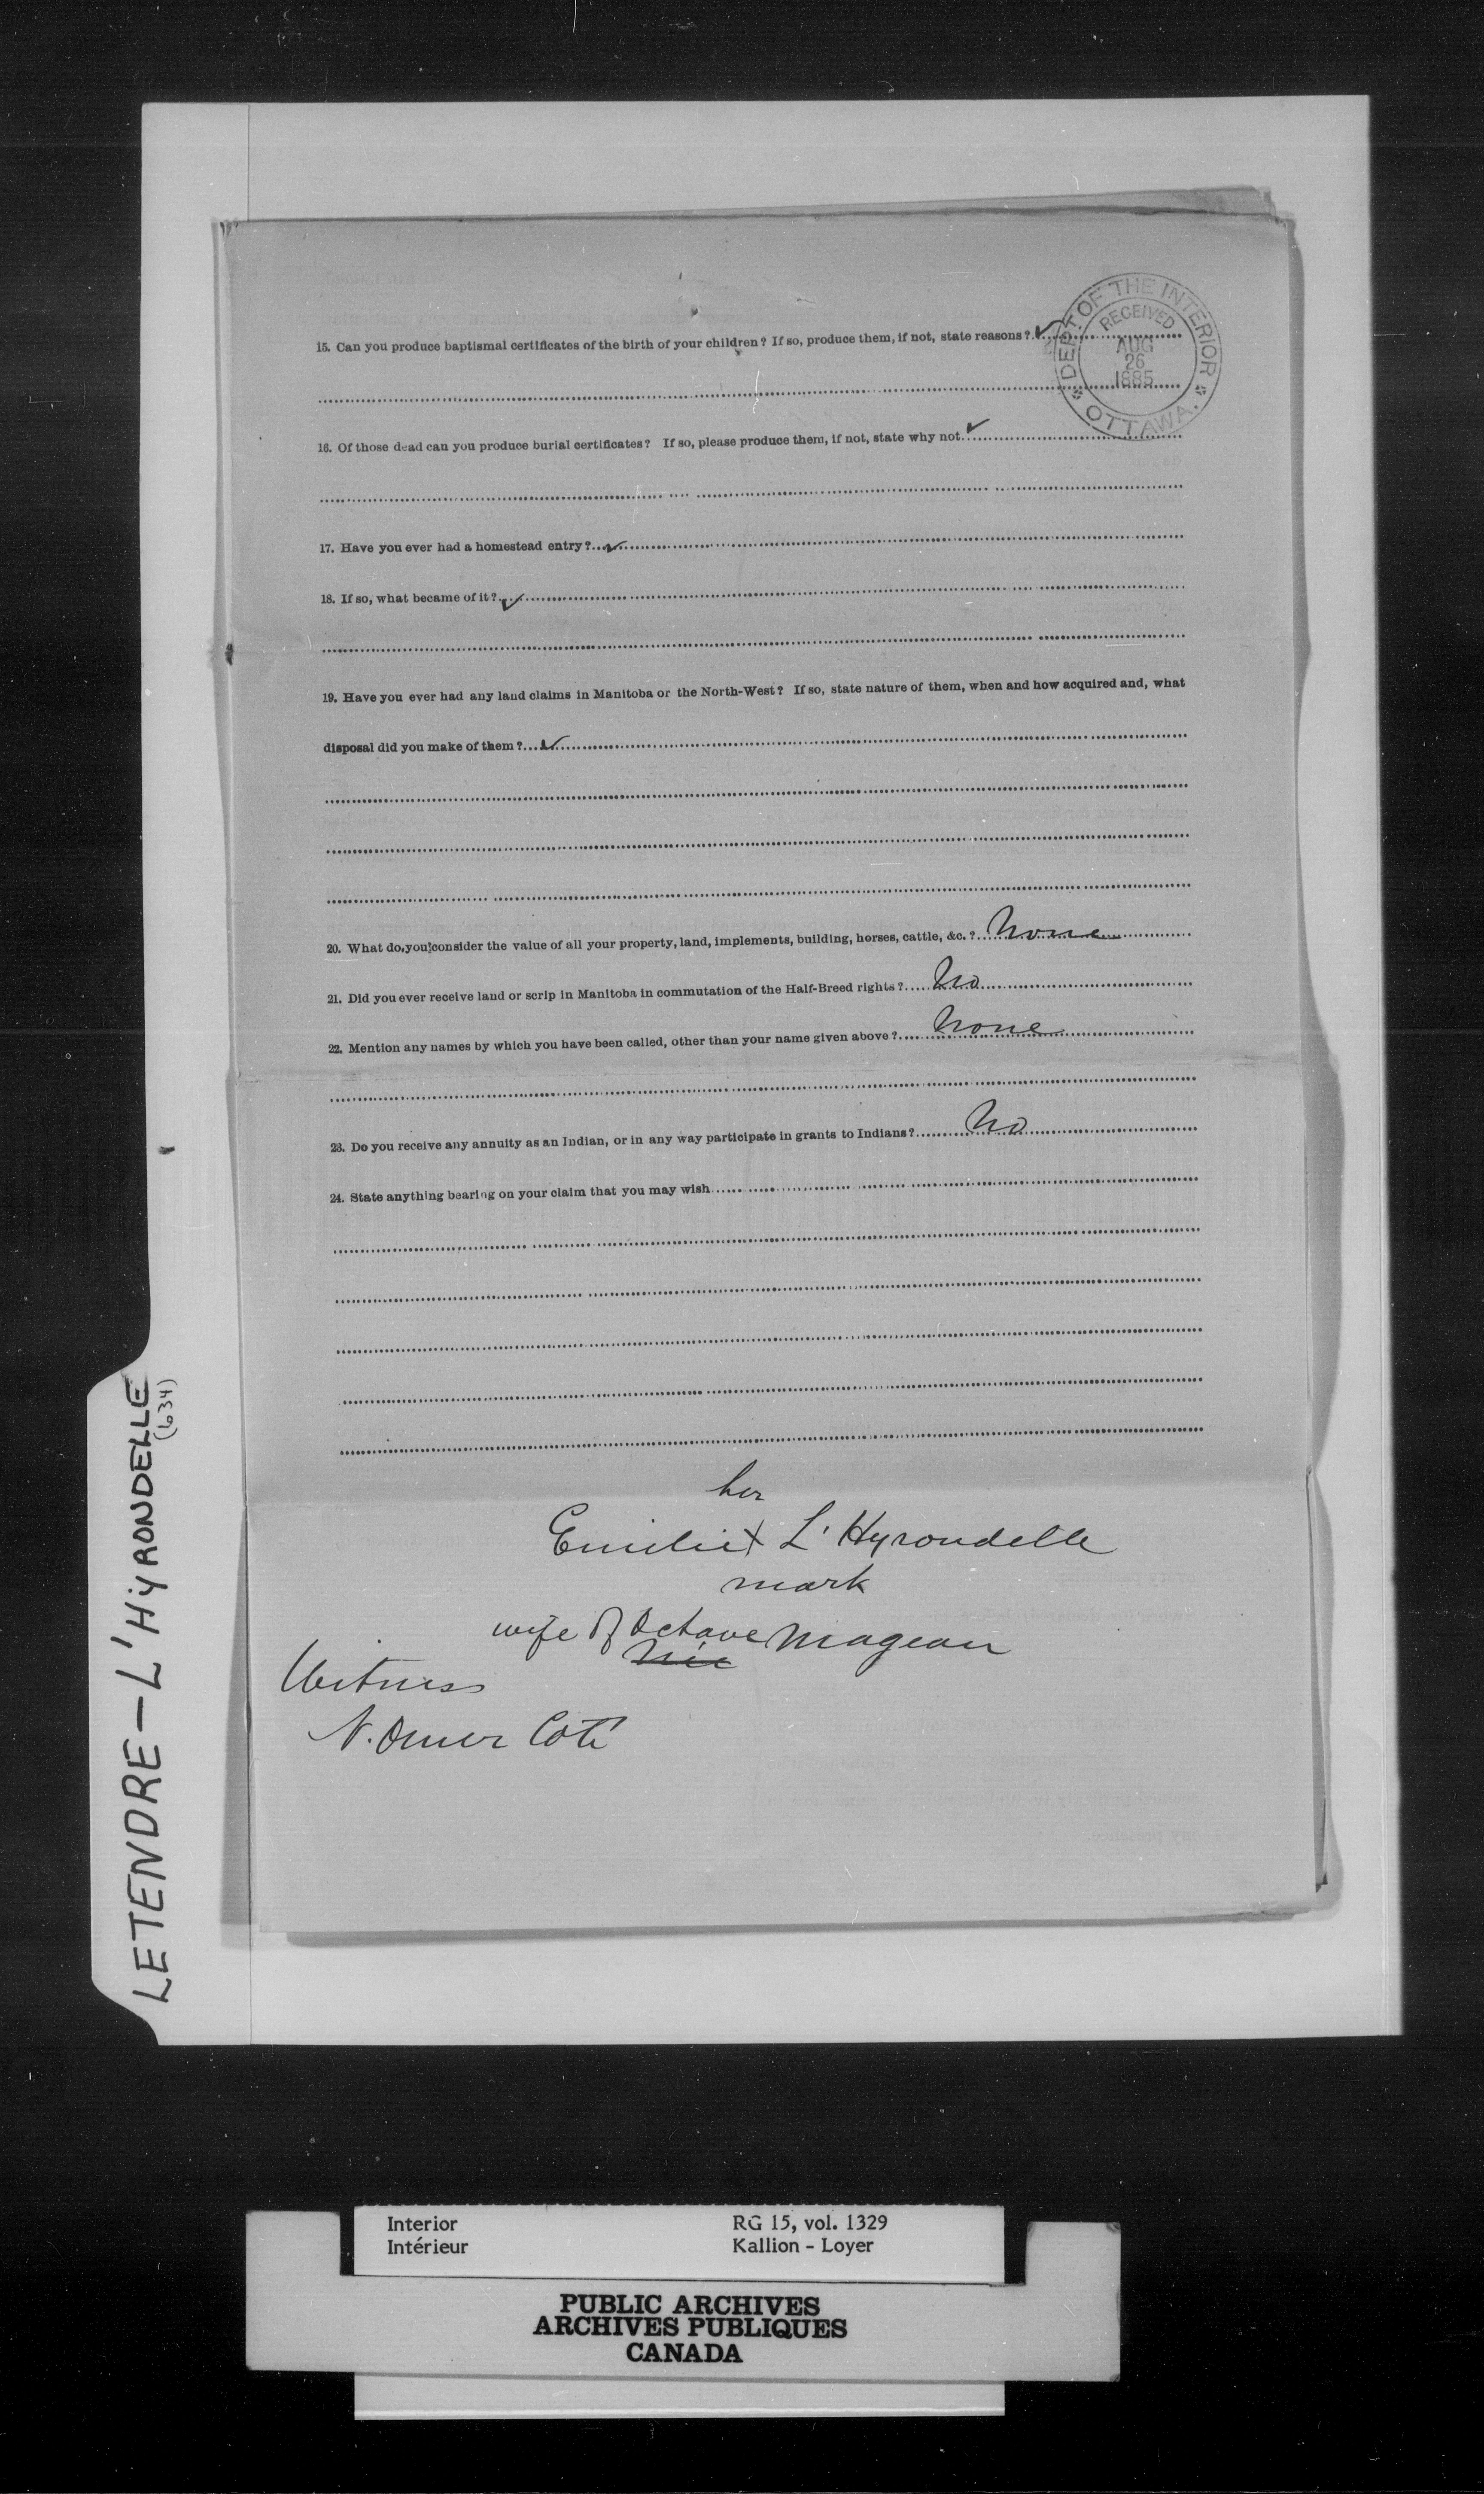 DEPT OF THE INTERIOR
RECEIVED
AUG
26
1885
OTTAWA.
15. Can you produce baptismal certificates of the birth of your children? If so, produce them, if not, state reasons? ✓
16. Of those dead can you produce burial certificates? If so, please produce them, if not, state why not. ✓
17. Have you ever had a homestead entry? ✓
18. If so, what became of it? ✓
19. Have you ever had any land claims in Manitoba or the North-West? If so, state nature of them, when and how acquired and, what
disposal did you make of them? ✓
20. What do you consider the value of all your property, land, implements, building, horses, cattle, &c.? None
21. Did you ever receive land or scrip in Manitoba in commutation of the Half-Breed rights? No
22. Mention any names by which you have been called, other than your name given above? None
23. Do you receive any annuity as an Indian, or in any way participate in grants to Indians? No
24. State anything bearing on your claim that you may wish
her
Emilie X L'Hyrondelle
mark
wife of Octave Mageau
Witness
N. Omer Coté
LETENDRE - L'HYRONDELLE
(634)
Interior RG 15, vol. 1329
Intérieur Kallion - Loyer
PUBLIC ARCHIVES
ARCHIVES PUBLIQUES
CANADA